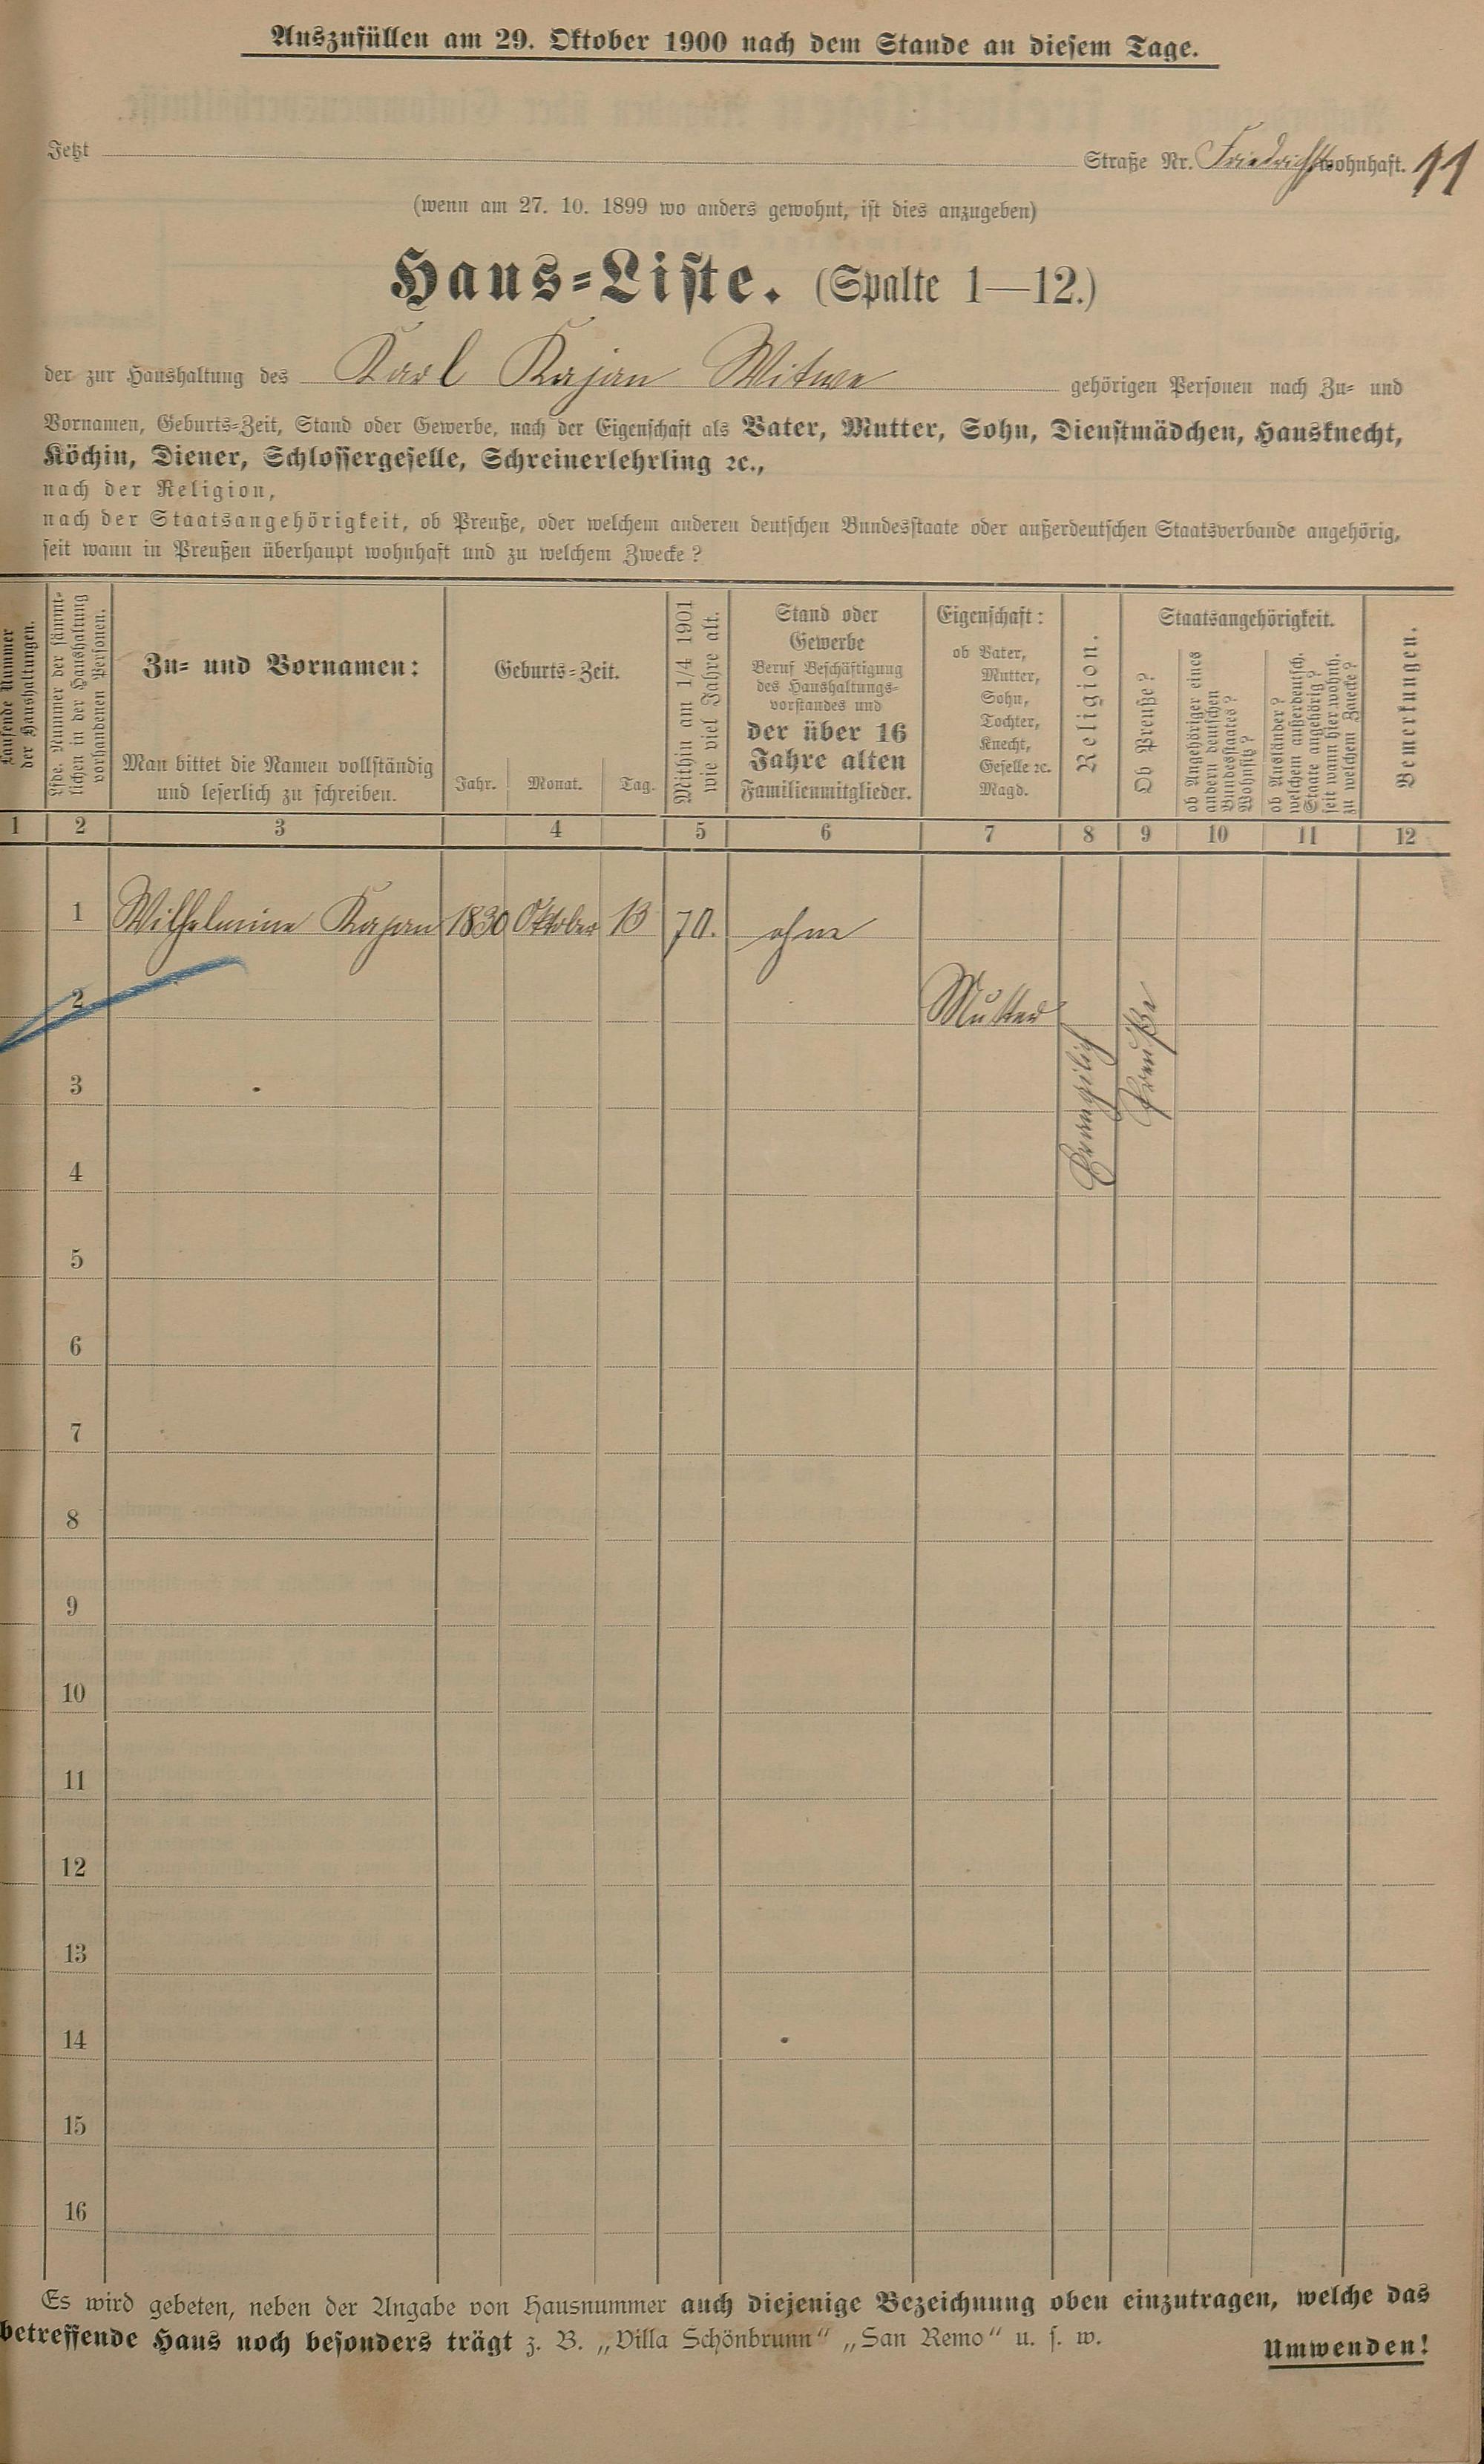 Auszufüllen am 29. Oktober 1900 nach dem Stande an diesem Tage.
Jetzt Straße Nr. Friedrichst wohnhaft. 11
(wenn am 27. 10. 1899 wo anders gewohnt, ist dies anzugeben)
Haus-Liste. (Spalte 1—12.)
der zur Haushaltung des Karl Kajan Witwe gehörigen Personen nach Zu- und
Vornamen, Geburts-Zeit, Stand oder Gewerbe, nach der Eigenschaft als Vater, Mutter, Sohn, Dienstmädchen, Hausknecht,
Köchin, Diener, Schlossergeselle, Schreinerlehrling ꝛc.,
nach der Religion,
nach der Staatsangehörigkeit, ob Preuße, oder welchem anderen deutschen Bundesstaate oder außerdeutschen Staatsverbande angehörig,
seit wann in Preußen überhaupt wohnhaft und zu welchem Zwecke?
Laufende Nummer
der Haushaltungen.
Lfde. Nummer der sämmt-
lichen in der Haushaltung
vorhandenen Personen.
Zu- und Vornamen:
Man bittet die Namen vollständig
und leserlich zu schreiben.
Geburts-Zeit.
Jahr. Monat. Tag.
Mithin am 1/4 1901
wie viel Jahre alt.
Stand oder
Gewerbe
Beruf Beschäftigung
des Haushaltungs-
vorstandes und
der über 16
Jahre alten
Familienmitglieder.
Eigenschaft:
ob Vater,
Mutter,
Sohn,
Tochter,
Knecht,
Geselle ꝛc.
Magd.
Religion.
Staatsangehörigkeit.
Ob Preuße?
ob Angehöriger eines
andern deutschen
Bundesstaates?
Wohnsitz?
ob Ausländer?
welchem außerdeutsch.
Staate angehörig?
seit wann hier wohnh.
zu welchem Zwecke?
Bemerkungen.
1 2 3 4 5 6 7 8 9 10 11 12
1 Wilhelmine Kajan 1830 Oktober 13 70. ohne
2 Mutter
Evangelich
Preuße
3
4
5
6
7
8
9
10
11
12
13
14
15
16
Es wird gebeten, neben der Angabe von Hausnummer auch diejenige Bezeichnung oben einzutragen, welche das
betreffende Haus noch besonders trägt z. B. „Villa Schönbrunn“ „San Remo“ u. s. w.
Umwenden!